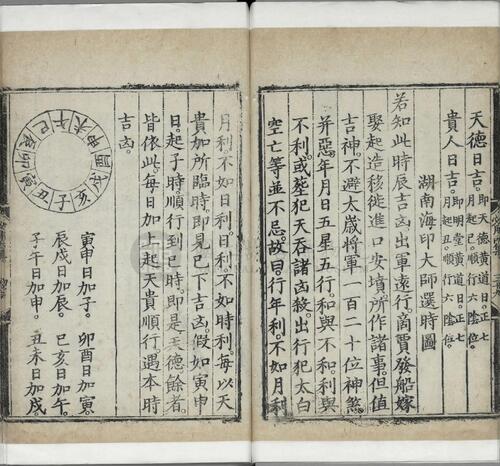 天德日吉。即天德黃道日。正七月起巳。順行六陰位。
貴人日吉。即明堂黃道日。正七月起丑。順行六陰位。
湖南海印大師選時圖
若知此時辰吉凶出軍遠行。商賈發船嫁
娶起造移徙進口安墳所作諸事。但值
吉神。不避太歲將軍一百二十位神煞。
并惡。年月日五星五行。和與不和。利與
不利。或塟犯天吞諸凶殺。出行犯太白
空亡等並不忌。故曰。行年利。不如月利
月利不如日利。日利。不如時利。每以天
貴加所臨時。即見巳下吉凶。假如寅申
日。起子時。順行到巳時。即是天德餘者。
皆依此。每日加上起天貴順行遇本時
吉凶。
子丑寅卯辰巳午未申酉戌亥
寅申日加子。卯酉日加寅。
辰戌日加辰。巳亥日加午。
子午日加申。丑未日加戌。